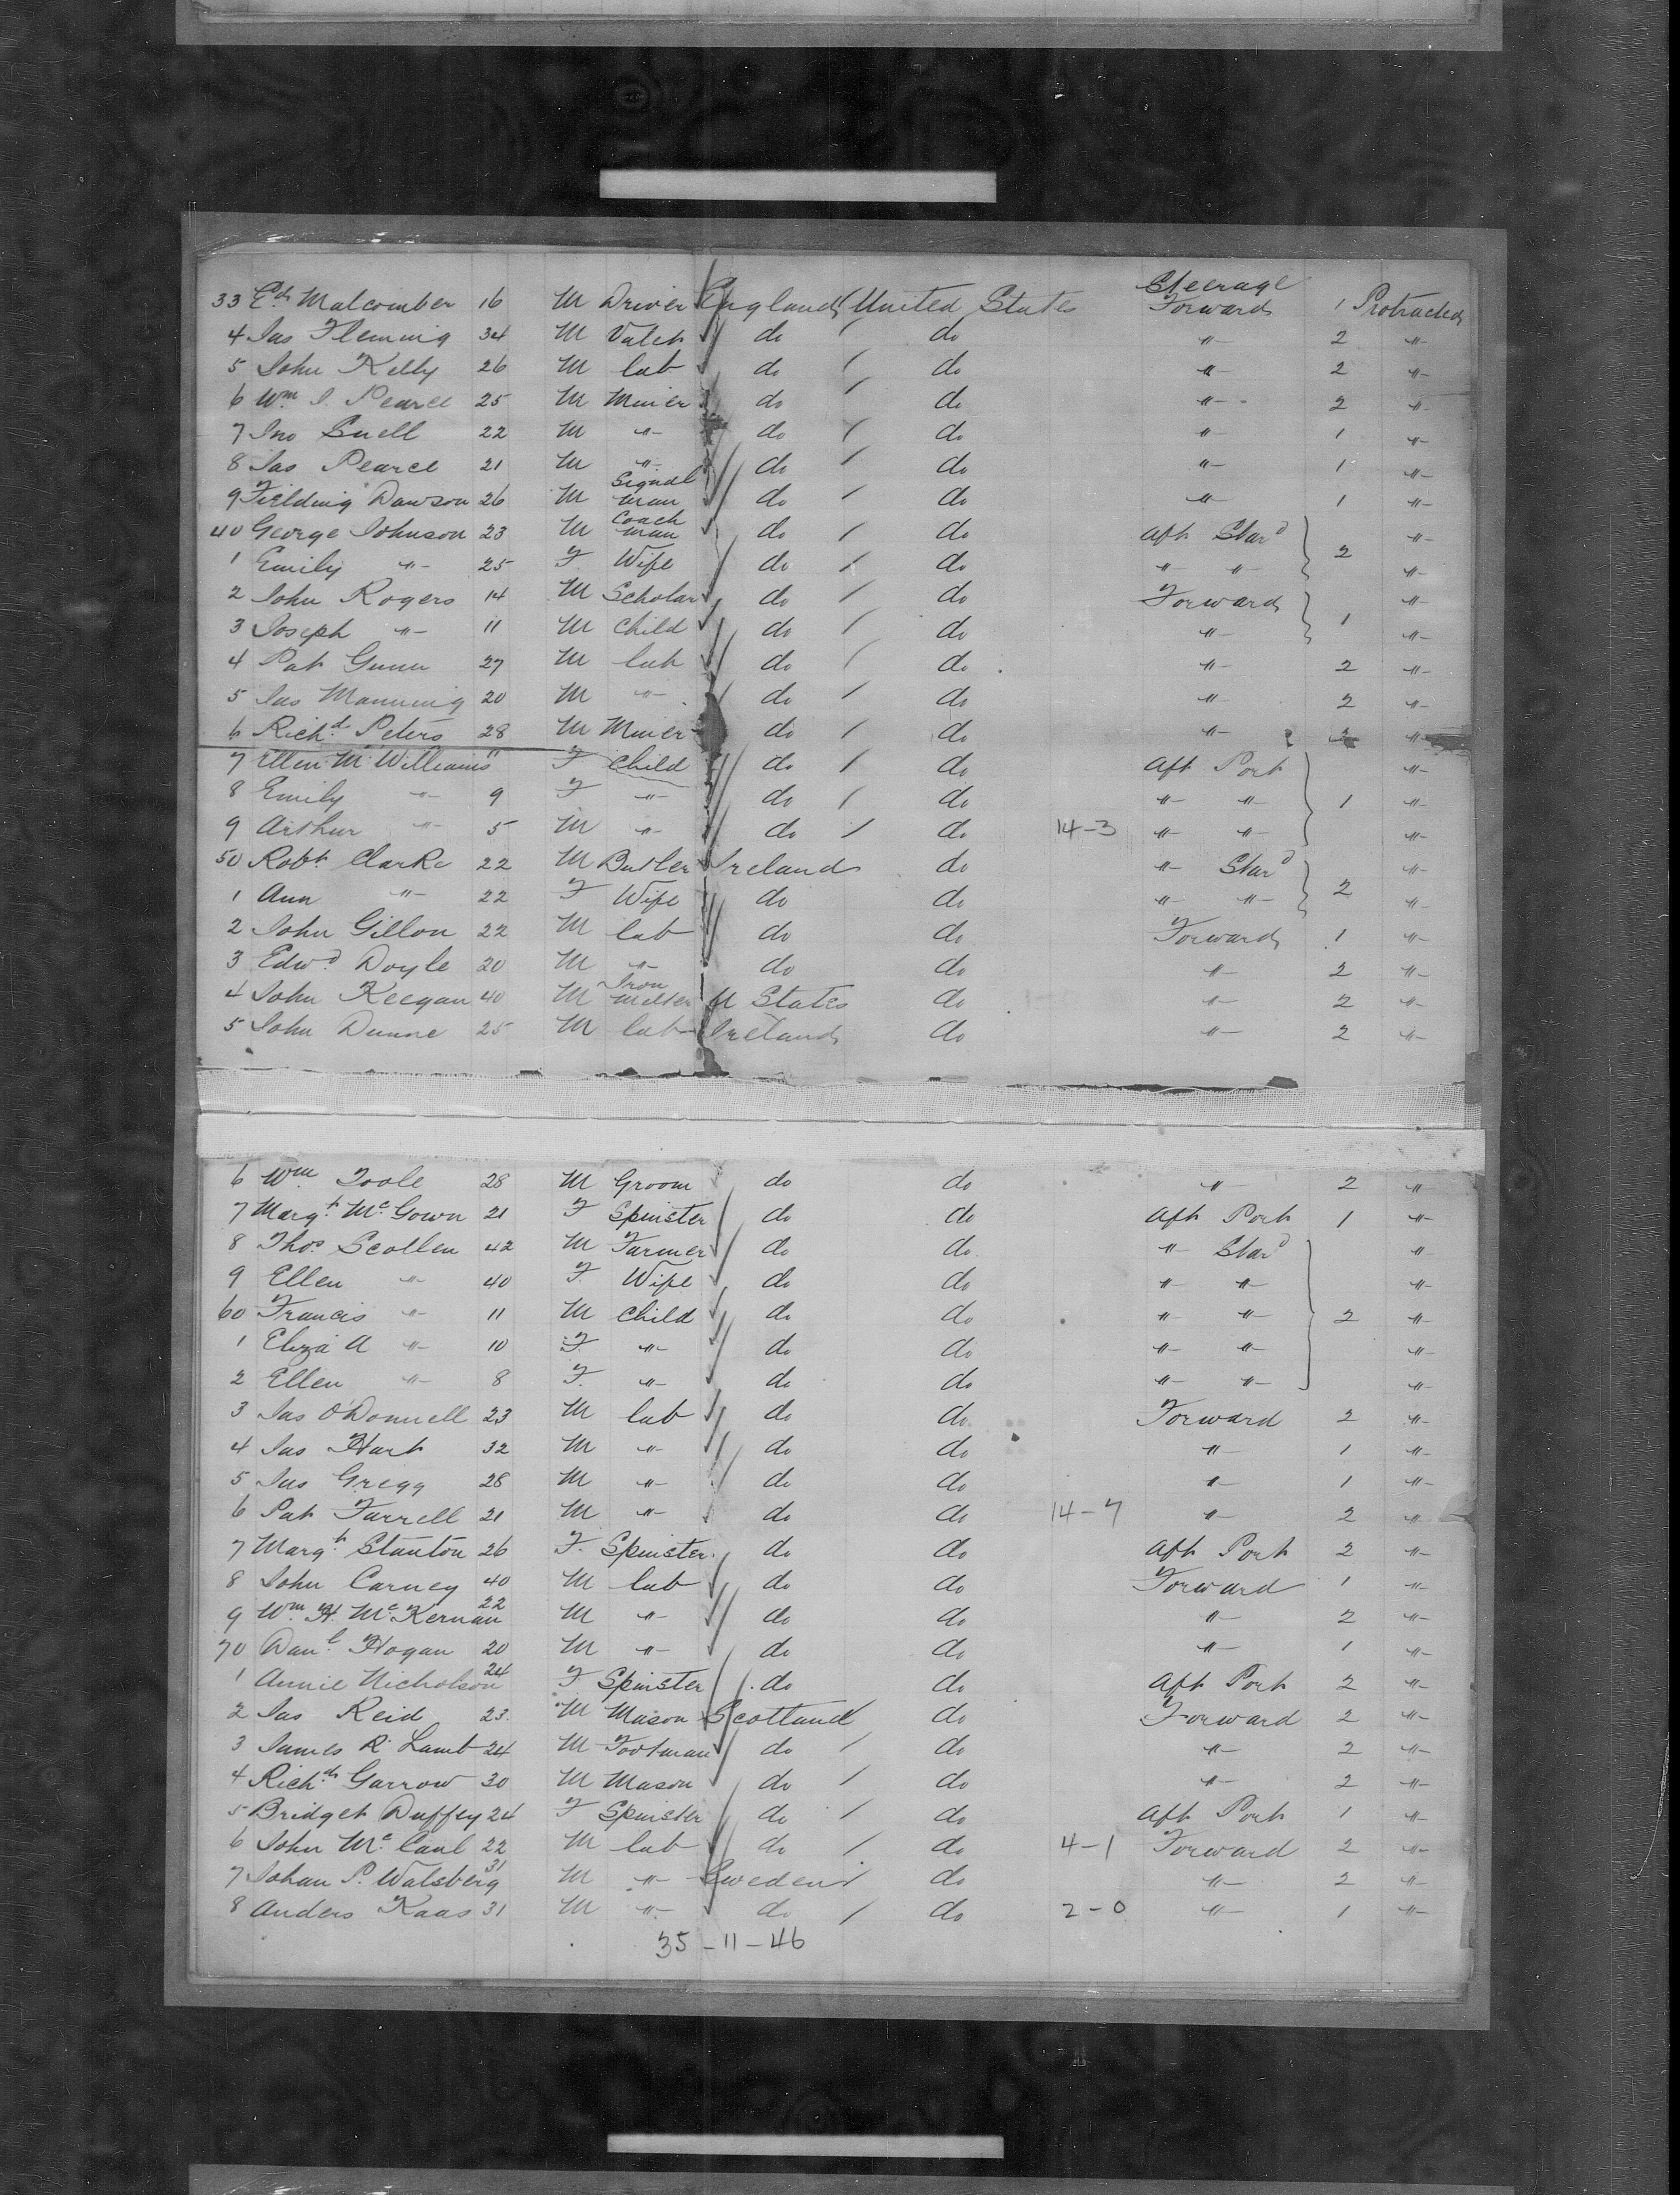 Steerage
33 Ed. Malcomber 16 M Driver England United States Forward 1 Protracted
4 Jas Fleming 34 M Valet do do " 2 "
5 John Kelly 26 M lab do do " 2 "
6 Wm J. Pearce 25 M Miner do do " 2 "
7 Jno Snell 22 M " do do " 1 "
8 Jas Pearce 21 M " do do " 1 "
9 Fielding Dawson 26 M Signal man do do " 1 "
40 George Johnson 23 M Coach man do do Aft Stard 2 "
1 Emily " 25 F Wife do do " " "
2 John Rogers 14 M Scholar do do Forward 1 "
3 Joseph " 11 M Child do do " "
4 Pat Gunn 27 M lab do do " 2 "
5 Jas Manning 20 M " do do " 2 "
6 Richd Peters 28 M Miner do do " "
7 Ellen Mc Williams 11 F Child do do Aft Port "
8 Emily " 9 F " do do " " 1 "
9 Arthur " 5 M " do do 14-3 " " "
50 Robt Clarke 22 M Butler Ireland do " Stard 2 "
1 Ann " 22 F Wife do do " " "
2 John Gillon 22 M lab do do Forward 1 "
3 Edwd Doyle 20 M " do do " 2 "
4 John Keegan 40 M Iron Melter U States do " 2 "
5 John Dunne 25 M lab Ireland do " 2 "
6 Wm Toole 28 M Groom do do " 2 "
7 Margt McGown 21 F Spinster do do Aft Port 1 "
8 Thos Scollen 42 M Farmer do do " Stard "
9 Ellen " 40 F. Wife do do " " "
60 Francis " 11 M Child do do " " 2 "
1 Eliza A " 10 F " do do " " "
2 Ellen " 8 F. " do do " " "
3 Jas O'Donnell 23 M lab do do Forward 2 "
4 Jas Hart 32 M " do do " 1 "
5 Jas Gregg 28 M " do do " 1 "
6 Pat Farrell 21 M " do do 14-7 " 2 "
7 Margt Stanton 26 F. Spinster do do Aft Port 2 "
8 John Carney 40 M lab do do Forward 1 "
9 Wm H. McKernan 22 M " do do " 2 "
70 Danl Hogan 20 M " do do " 1 "
1 Annie Nicholson 24 F Spinster do do Aft Port 2 "
2 Jas Reid 23 M Mason Scotland do Forward 2 "
3 James R. Lamb 24 M Footman do do " 2 "
4 Richd Garrow 30 M Mason do do " 2 "
5 Bridget Duffey 24 F Spinster do do Aft Port 1 "
6 John Mc Caul 22 M lab do do 4-1 Forward 2 "
7 Johan P. Walsberg 31 M " Sweden do " 2 "
8 Anders Kaas 31 M " do do 2-0 " 1 "
35-11-46